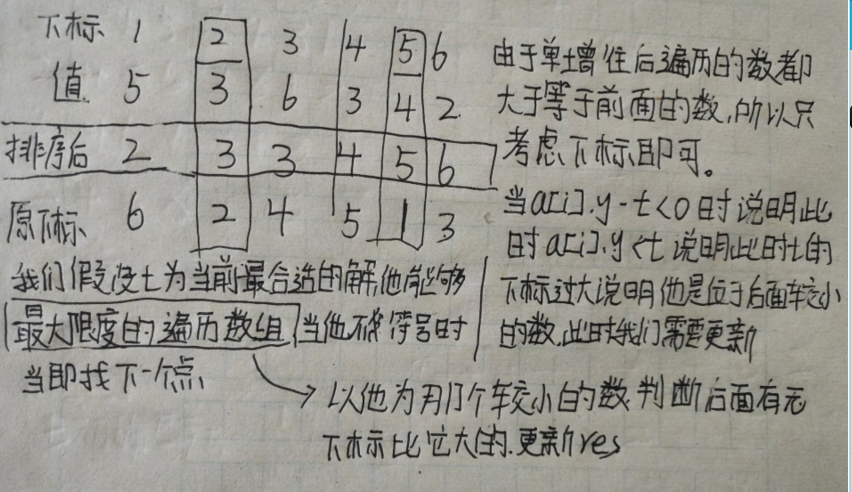 下标 1 2 3 4 5 6
值 5 3 6 3 4 2
排序后 2 3 3 4 5 6
原下标 6 2 4 5 1 3
由于单增往后遍历的数都
大于等于前面的数,所以只
考虑下标即可。
当a[i].y-t<0时说明此
时a[i].y<t说明此时t的
下标过大说明他是位于后面较小
的数,此时我们需要更新
我们假设t为当前最合适的解,他能够
最大限度的遍历数组,当他不符号时
当即找下一个点
以他为那个较小的数,判断后面有无
下标比它大的.更新res